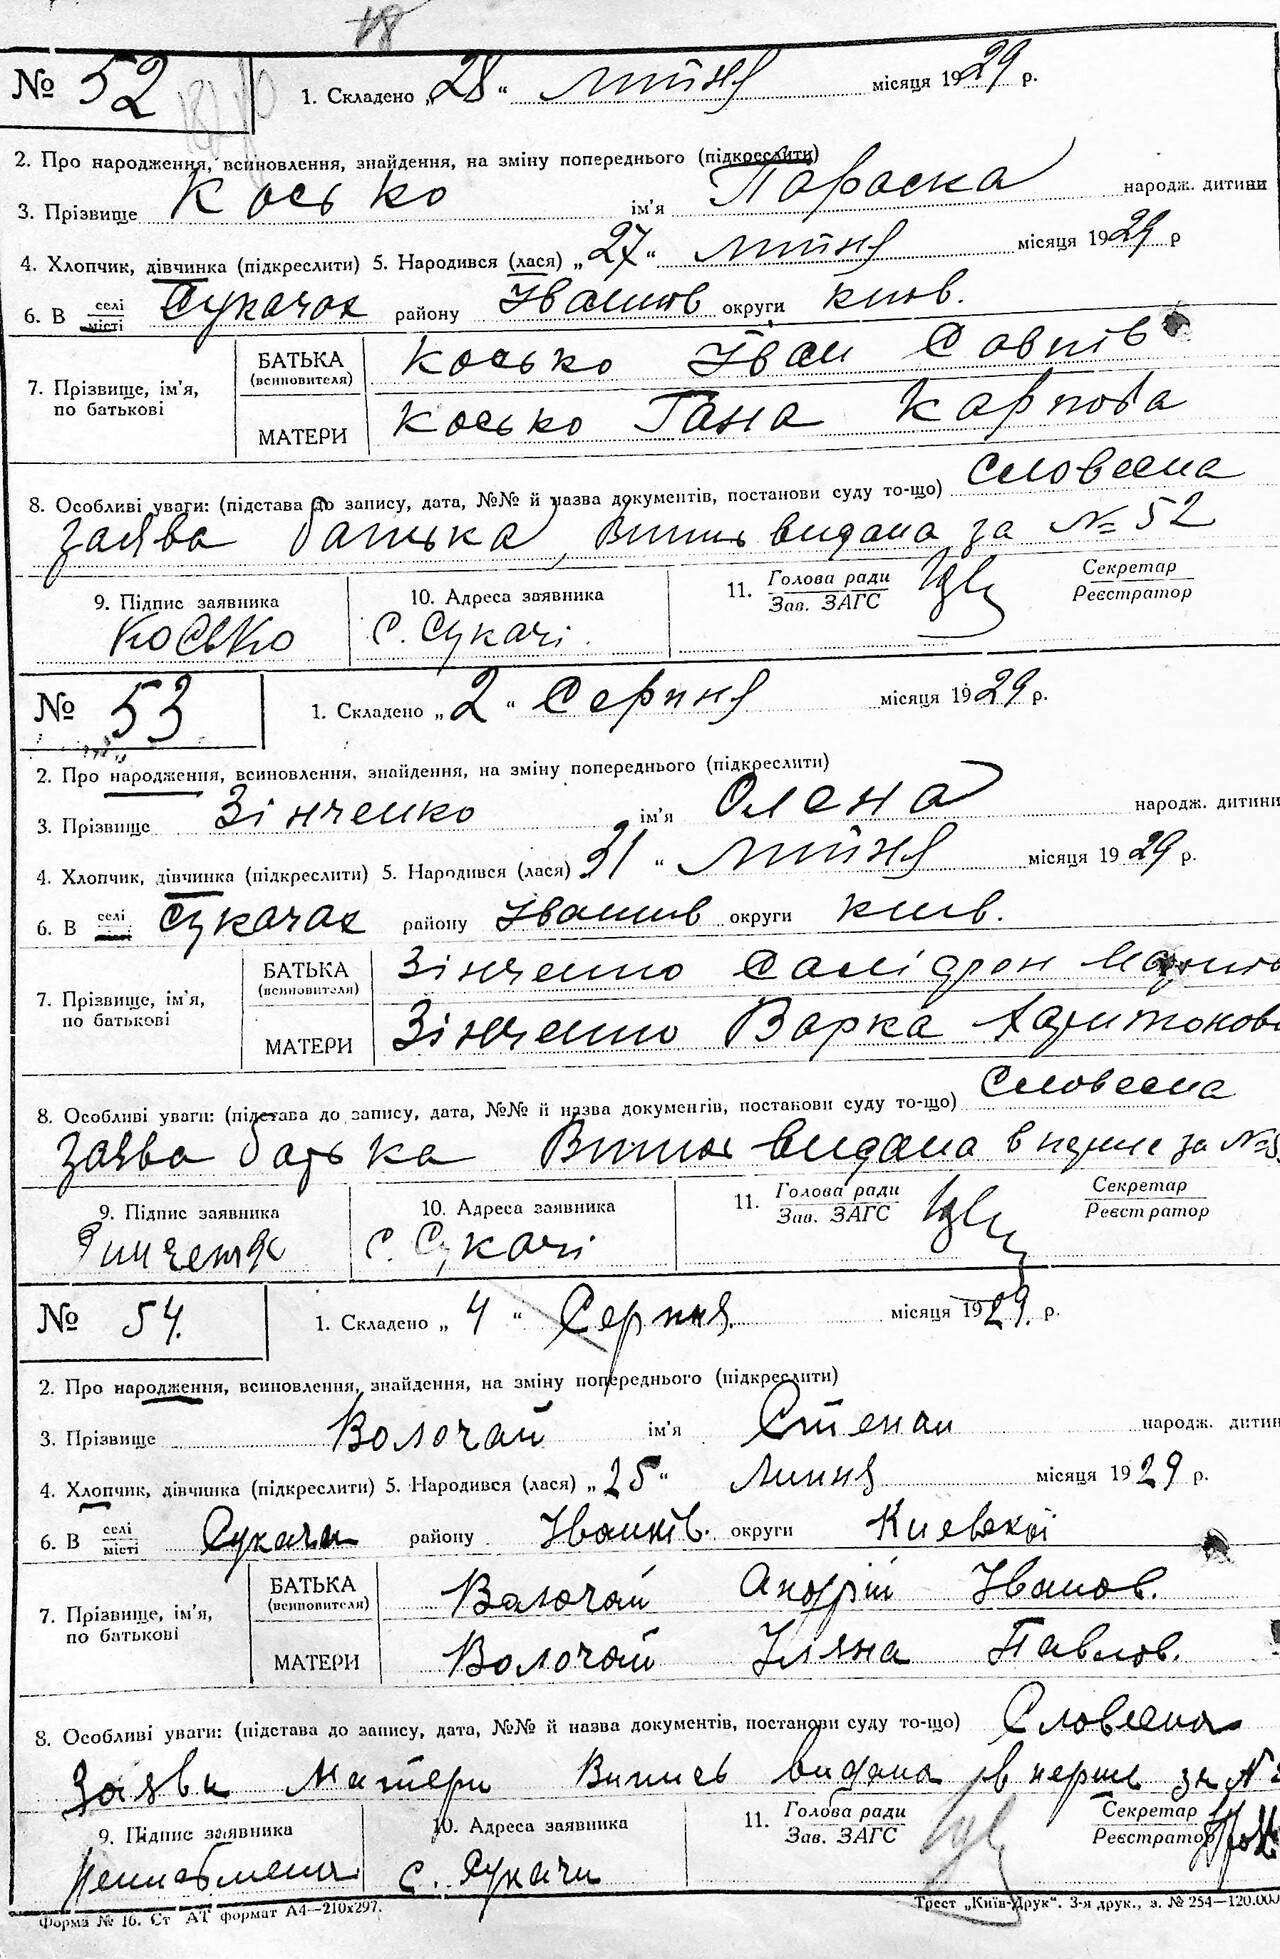 № 52 1. Складено „28“ липня місяця 1929 р.
2. Про народження, всиновлення, знайдення, на зміну попереднього (підкреслити)
3. Прізвище Косько ім'я Параска народж. дитини
4. Хлопчик, дівчинка (підкреслити) 5. Народився (лася) „27“ липня місяця 1929 р
6. В селі місті Сукачах району Іванків округи київ.
7. Прізвище, ім'я, по батькові БАТЬКА (всиновителя) Косько Іван Савків
МАТЕРИ Косько Гана Карпова
8. Особливі уваги: (підстава до запису, дата, №№ й назва документів, постанови суду то-що) словесна
заява батька, Витись видана за № 52
9. Підпис заявника 10. Адреса заявника 11. Голова ради Зав. ЗАГС Секретар Реєстратор
Косько с. Сукачі
№ 53 1. Складено „2“ Серпня місяця 1929 р.
2. Про народження, всиновлення, знайдення, на зміну попереднього (підкреслити)
3. Прізвище Зінченко ім'я Олена народж. дитини
4. Хлопчик, дівчинка (підкреслити) 5. Народився (лася) 31“ липня місяця 1929 р.
6. В селі Сукачах району Іванків округи київ.
7. Прізвище, ім'я, по батькові БАТЬКА (всиновителя) Зінченко
МАТЕРИ Зінченко Варка Харитонова
8. Особливі уваги: (підстава до запису, дата, №№ й назва документів, постанови суду то-що) словесна
заява батька Витись видана вперше за №
9. Підпис заявника 10. Адреса заявника 11. Голова ради Зав. ЗАГС Секретар Реєстратор
с. Сукачі
№ 54. 1. Складено „4“ Серпня. місяця 1929. р.
2. Про народження, всиновлення, знайдення, на зміну попереднього (підкреслити)
3. Прізвище Волочай ім'я Степан народж. дитин
4. Хлопчик, дівчинка (підкреслити) 5. Народився (лася) „25“ липня місяця 1929 р.
6. В селі місті Сукачи району Іванків. округи Киевскої
7. Прізвище, ім'я, по батькові БАТЬКА (всиновителя) Волочай Андрій Іванов.
МАТЕРИ Волочай Уляна Павлов.
8. Особливі уваги: (підстава до запису, дата, №№ й назва документів, постанови суду то-що) Словесна
Заява Матери Витись видана в перше за №
9. Підпис заявника 10. Адреса заявника 11. Голова ради Зав. ЗАГС Секретар Реєстратор
с. Сукачи
Форма № 16. Ст АТ формат А4—210х297. Трест „Київ-Друк“. 3-я друк., з. № 254—120.000